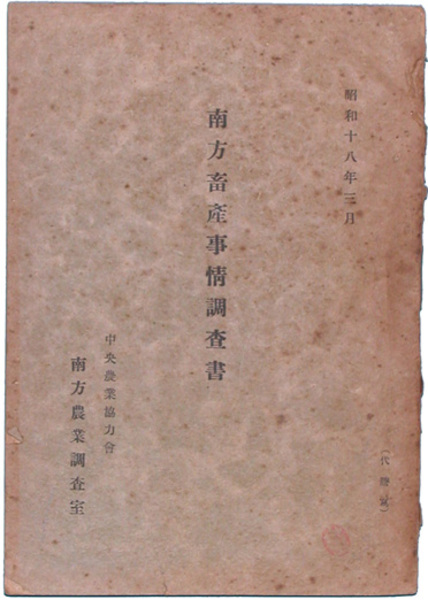 昭和十八年三月
南方畜產事情調查書
中央農業協力會
南方農業調查室
(代謄寫)